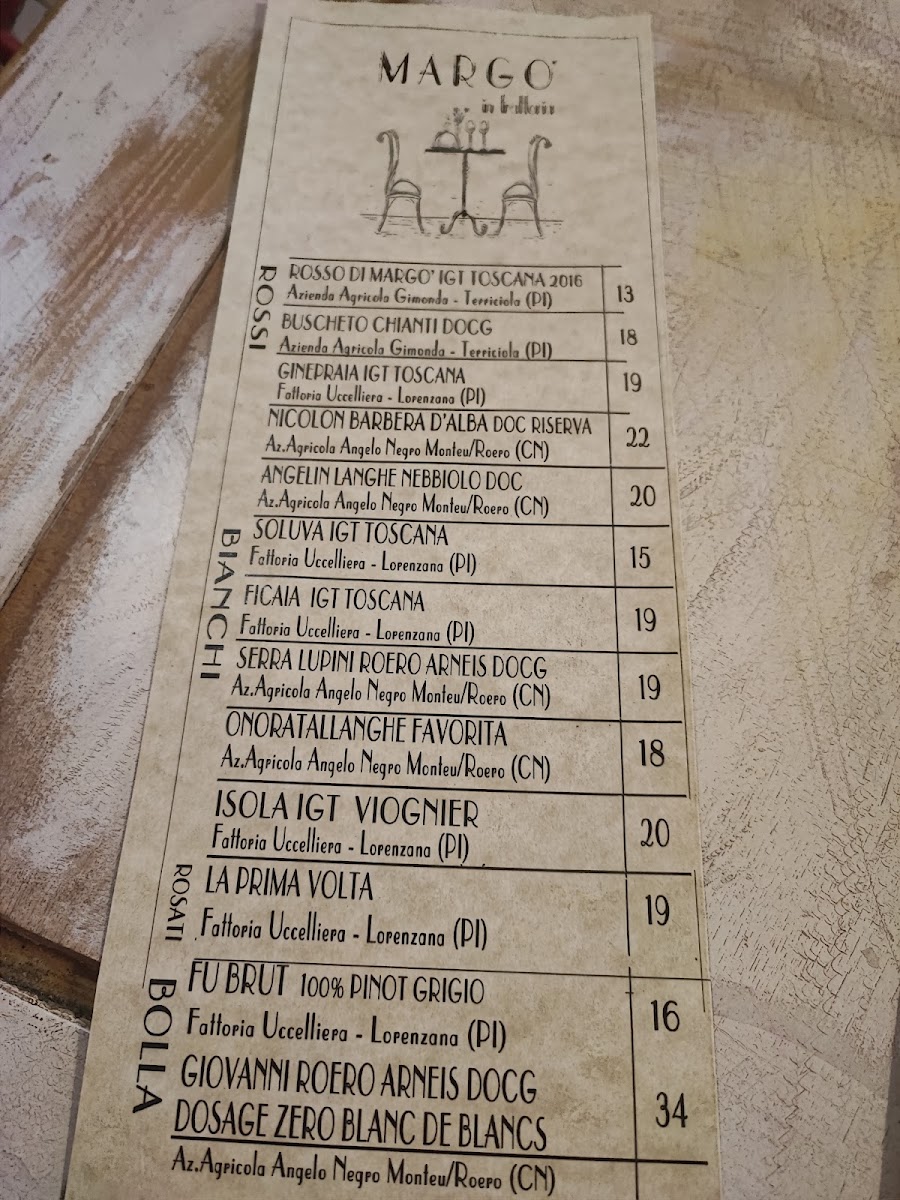 MARGO'
in trattoria
ROSSI
ROSSO DI MARGO' IGT TOSCANA 2016 13
Azienda Agricola Gimonda - Terriciola (PI)
BUSCHETO CHIANTI DOCG 18
Azienda Agricola Gimonda - Terriciola (PI)
GINEPRAIA IGT TOSCANA 19
Fattoria Uccelliera - Lorenzana (PI)
NICOLON BARBERA D'ALBA DOC RISERVA 22
Az.Agricola Angelo Negro Monteu/Roero (CN)
ANGELIN LANGHE NEBBIOLO DOC 20
Az.Agricola Angelo Negro Monteu/Roero (CN)
BIANCHI
SOLUVA IGT TOSCANA 15
Fattoria Uccelliera - Lorenzana (PI)
FICAIA IGT TOSCANA 19
Fattoria Uccelliera - Lorenzana (PI)
SERRA LUPINI ROERO ARNEIS DOCG 19
Az.Agricola Angelo Negro Monteu/Roero (CN)
ONORATALLANGHE FAVORITA 18
Az.Agricola Angelo Negro Monteu/Roero (CN)
ISOLA IGT VIOGNIER 20
Fattoria Uccelliera - Lorenzana (PI)
ROSATI
LA PRIMA VOLTA 19
Fattoria Uccelliera - Lorenzana (PI)
BOLLA
FU BRUT 100% PINOT GRIGIO 16
Fattoria Uccelliera - Lorenzana (PI)
GIOVANNI ROERO ARNEIS DOCG 34
DOSAGE ZERO BLANC DE BLANCS
Az.Agricola Angelo Negro Monteu/Roero (CN)